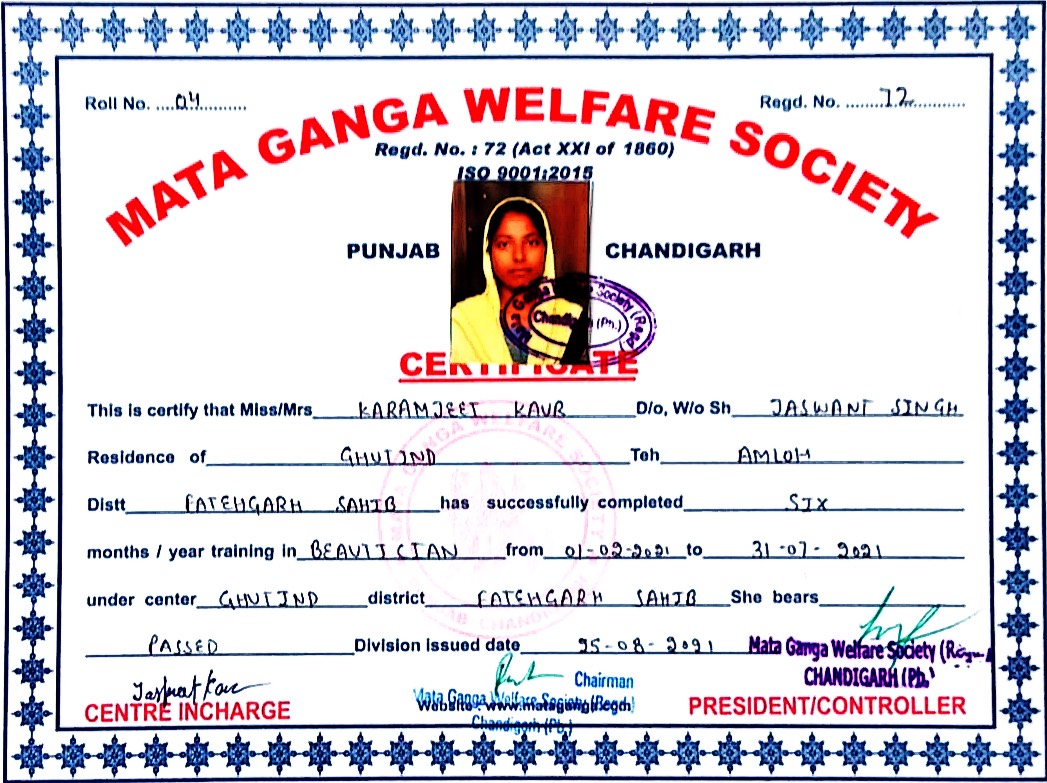 Roll No. ....04..........
Regd. No. ........72............
MATA GANGA WELFARE SOCIETY
Regd. No. : 72 (Act XXI of 1860)
ISO 9001:2015
PUNJAB CHANDIGARH
Mata Ganga Welfare Society (Regd)
Chandigarh (Pb.)
CERTIFICATE
This is certify that Miss/Mrs KARAMJEET KAUR D/o, W/o Sh JASWANT SINGH
Residence of GHUTIND Teh AMLOH
Distt FATEHGARH SAHIB has successfully completed SIX
months / year training in BEAUTICIAN from 01-02-2021 to 31-07-2021
under center GHUTIND district FATEHGARH SAHIB She bears
PASSED Division issued date 25-08-2021
MATA GANGA WELFARE SOCIETY
PUNJAB CHANDIGARH
Mata Ganga Welfare Society (Regd.)
CHANDIGARH (Pb.)
Chairman
CENTRE INCHARGE
Mata Ganga Welfare Society (Regd)
Chandigarh (Pb.)
PRESIDENT/CONTROLLER